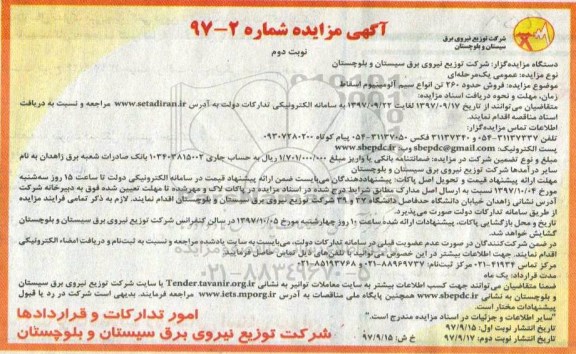 آگهی مزایده شماره ۲-۹۷
نوبت دوم
شرکت توزیع نیروی برق
سیستان و بلوچستان
دستگاه مزایده‌گزار: شرکت توزیع نیروی برق سیستان و بلوچستان
نوع مزایده: عمومی یک‌مرحله‌ای
موضوع مزایده: فروش حدود ۲۶۰ تن انواع سیم آلومینیوم اسقاط
زمان، مهلت و نحوه دریافت اسناد مزایده:
متقاضیان می‌توانند از تاریخ ۱۳۹۷/۰۹/۱۷ لغایت ۱۳۹۷/۰۹/۲۲ به سامانه الکترونیکی تدارکات دولت به آدرس www.setadiran.ir مراجعه و نسبت به دریافت
اسناد مناقصه اقدام نمایند.
اطلاعات تماس مزایده‌گزار:
تلفن ۳۱۱۳۷۳۳۷-۰۵۴ و ۳۱۱۳۷۳۴۰ فکس ۳۱۱۳۷۰۵۰-۰۵۴ پیام کوتاه ۰۹۳۰۷۲۸۰۲۰۰
پست الکترونیک: sbepdc@gmail.com وب www.sbepdc.ir
مبلغ و نوع تضمین شرکت در مزایده: ضمانتنامه بانکی یا واریز مبلغ ۱/۷۰۱/۰۰۰/۰۰۰ ریال به حساب جاری ۱۰۳۴۰۳۸۱۵۰۰۲ بانک صادرات شعبه برق زاهدان به نام
سایر درآمدها شرکت توزیع نیروی برق سیستان و بلوچستان
مهلت ارائه پیشنهاد قیمت و تحویل اصل پاکات: پیشنهاددهندگان می‌بایست ضمن ارائه پیشنهاد قیمت در سامانه الکترونیکی دولت تا ساعت ۱۵ روز سه‌شنبه
مورخ ۱۳۹۷/۱۰/۰۴ نسبت به ارسال اصل مدارک مطابق شرایط درج شده در اسناد مزایده در پاکات لاک و مهرشده تا مهلت تعیین شده فوق به دبیرخانه شرکت
آدرس نشانی زاهدان خیابان دانشگاه حدفاصل دانشگاه ۳۷ و ۳۹ شرکت توزیع نیروی برق سیستان و بلوچستان اقدام نمایند. لازم به ذکر تمامی فرایند مزایده
از طریق سامانه تدارکات دولت صورت می‌پذیرد.
تاریخ و محل بازگشایی پاکات: پیشنهادات ارائه شده ساعت ۱۰ روز چهارشنبه مورخ ۱۳۹۷/۱۰/۰۵ در سالن کنفرانس شرکت توزیع نیروی برق سیستان و بلوچستان
گشایش خواهد شد.
در ضمن شرکت‌کنندگان در صورت عدم عضویت قبلی در سامانه تدارکات دولت، می‌بایست به سایت یادشده مراجعه و نسبت به ثبت‌نام و دریافت امضاء الکترونیکی
اقدام نمایند. جهت اطلاعات بیشتر در این خصوص می‌توانید با تلفن‌های ذیل تماس حاصل فرمایید.
مرکز تماس ۴۱۹۳۴-۰۲۱ مرکز ثبت‌نام: ۸۸۹۶۹۷۳۷-۰۲۱ و ۸۵۱۹۳۷۶۸-۰۲۱
مدت قرارداد: یک ماه
ضمنا متقاضیان می‌توانند جهت کسب اطلاعات بیشتر به سایت معاملات توانیر به نشانی Tender.tavanir.org.ir یا سایت شرکت توزیع نیروی برق سیستان
و بلوچستان به نشانی www.sbepdc.ir همچنین پایگاه ملی مناقصات به آدرس www.iets.mporg.ir مراجعه فرمایند. بدیهی است شرکت در رد یا قبول
پیشنهادات مختار است.
"سایر اطلاعات و جزئیات در اسناد مزایده مندرج است."
تاریخ انتشار نوبت اول: ۹۷/۹/۱۵
تاریخ انتشار نوبت دوم: ۹۷/۹/۱۷
خ ش: ۹۷/۹/۱۵
امور تدارکات و قراردادها
شرکت توزیع نیروی برق سیستان و بلوچستان